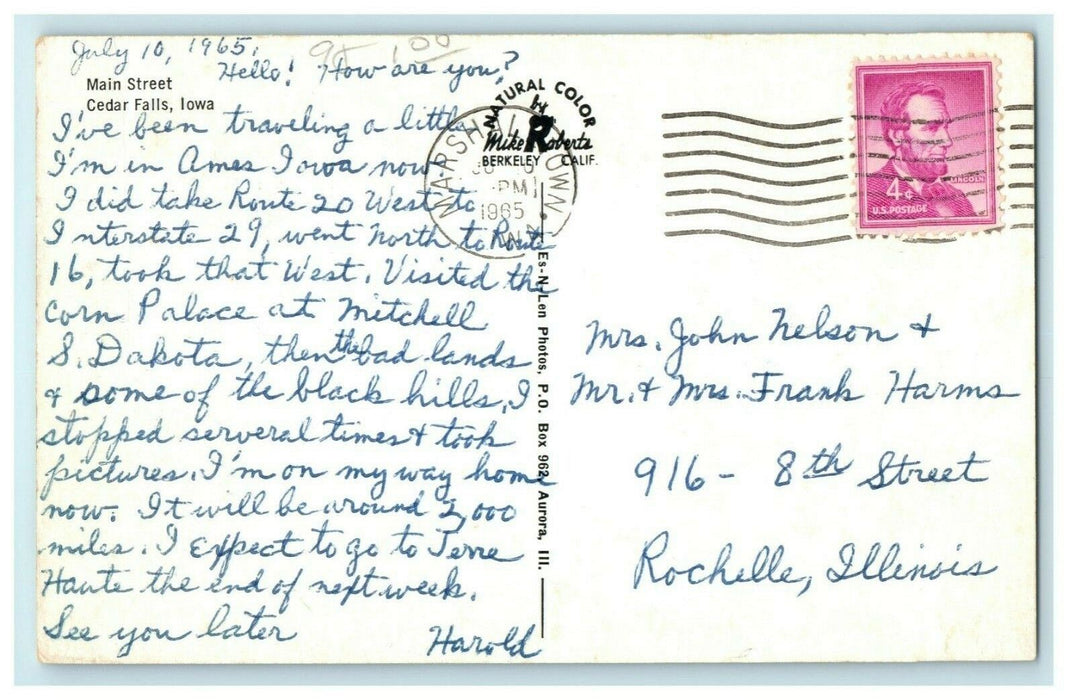 July 10, 1965.
95 1.00
Hello! How are you?
Main Street
Cedar Falls, Iowa
I've been traveling a little
I'm in Ames Iowa now.
I did take Route 20 West to
Interstate 29, went North to Route
16, took that West. Visited the
Corn Palace at Mitchell
S. Dakota, then the bad lands
& some of the black hills. I
stopped serveral times & took
pictures. I'm on my way home
now. It will be around 2,000
miles. I expect to go to Terre
Haute the end of next week.
See you later
Harold
NATURAL COLOR
by
Mike Roberts
BERKELEY CALIF.
MARSHALLTOWN
PM
1965
Es-N-Len Photos, P.O. Box 962, Aurora, Ill.
LINCOLN
4¢
U.S. POSTAGE
Mrs. John Nelson &
Mr. & Mrs. Frank Harms
916- 8th Street
Rochelle, Illinois